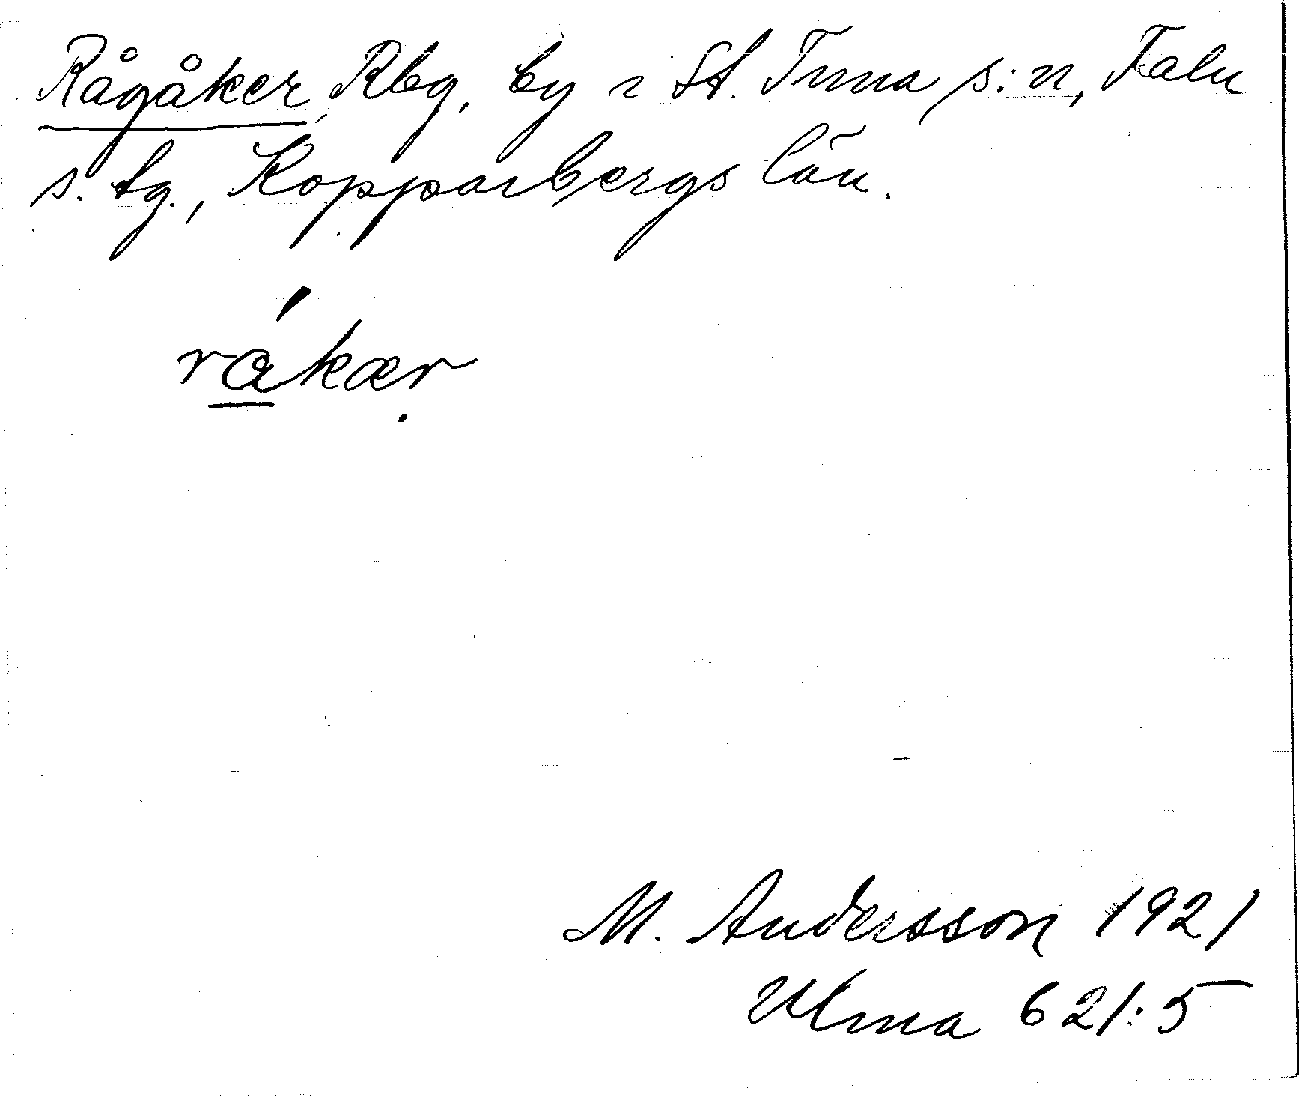 Rågåker, Rbg, by i St. Tuna s:n, Falu
s. tg., Kopparbergs län.
rákær
M. Andersson 1921
Ulma 621:5